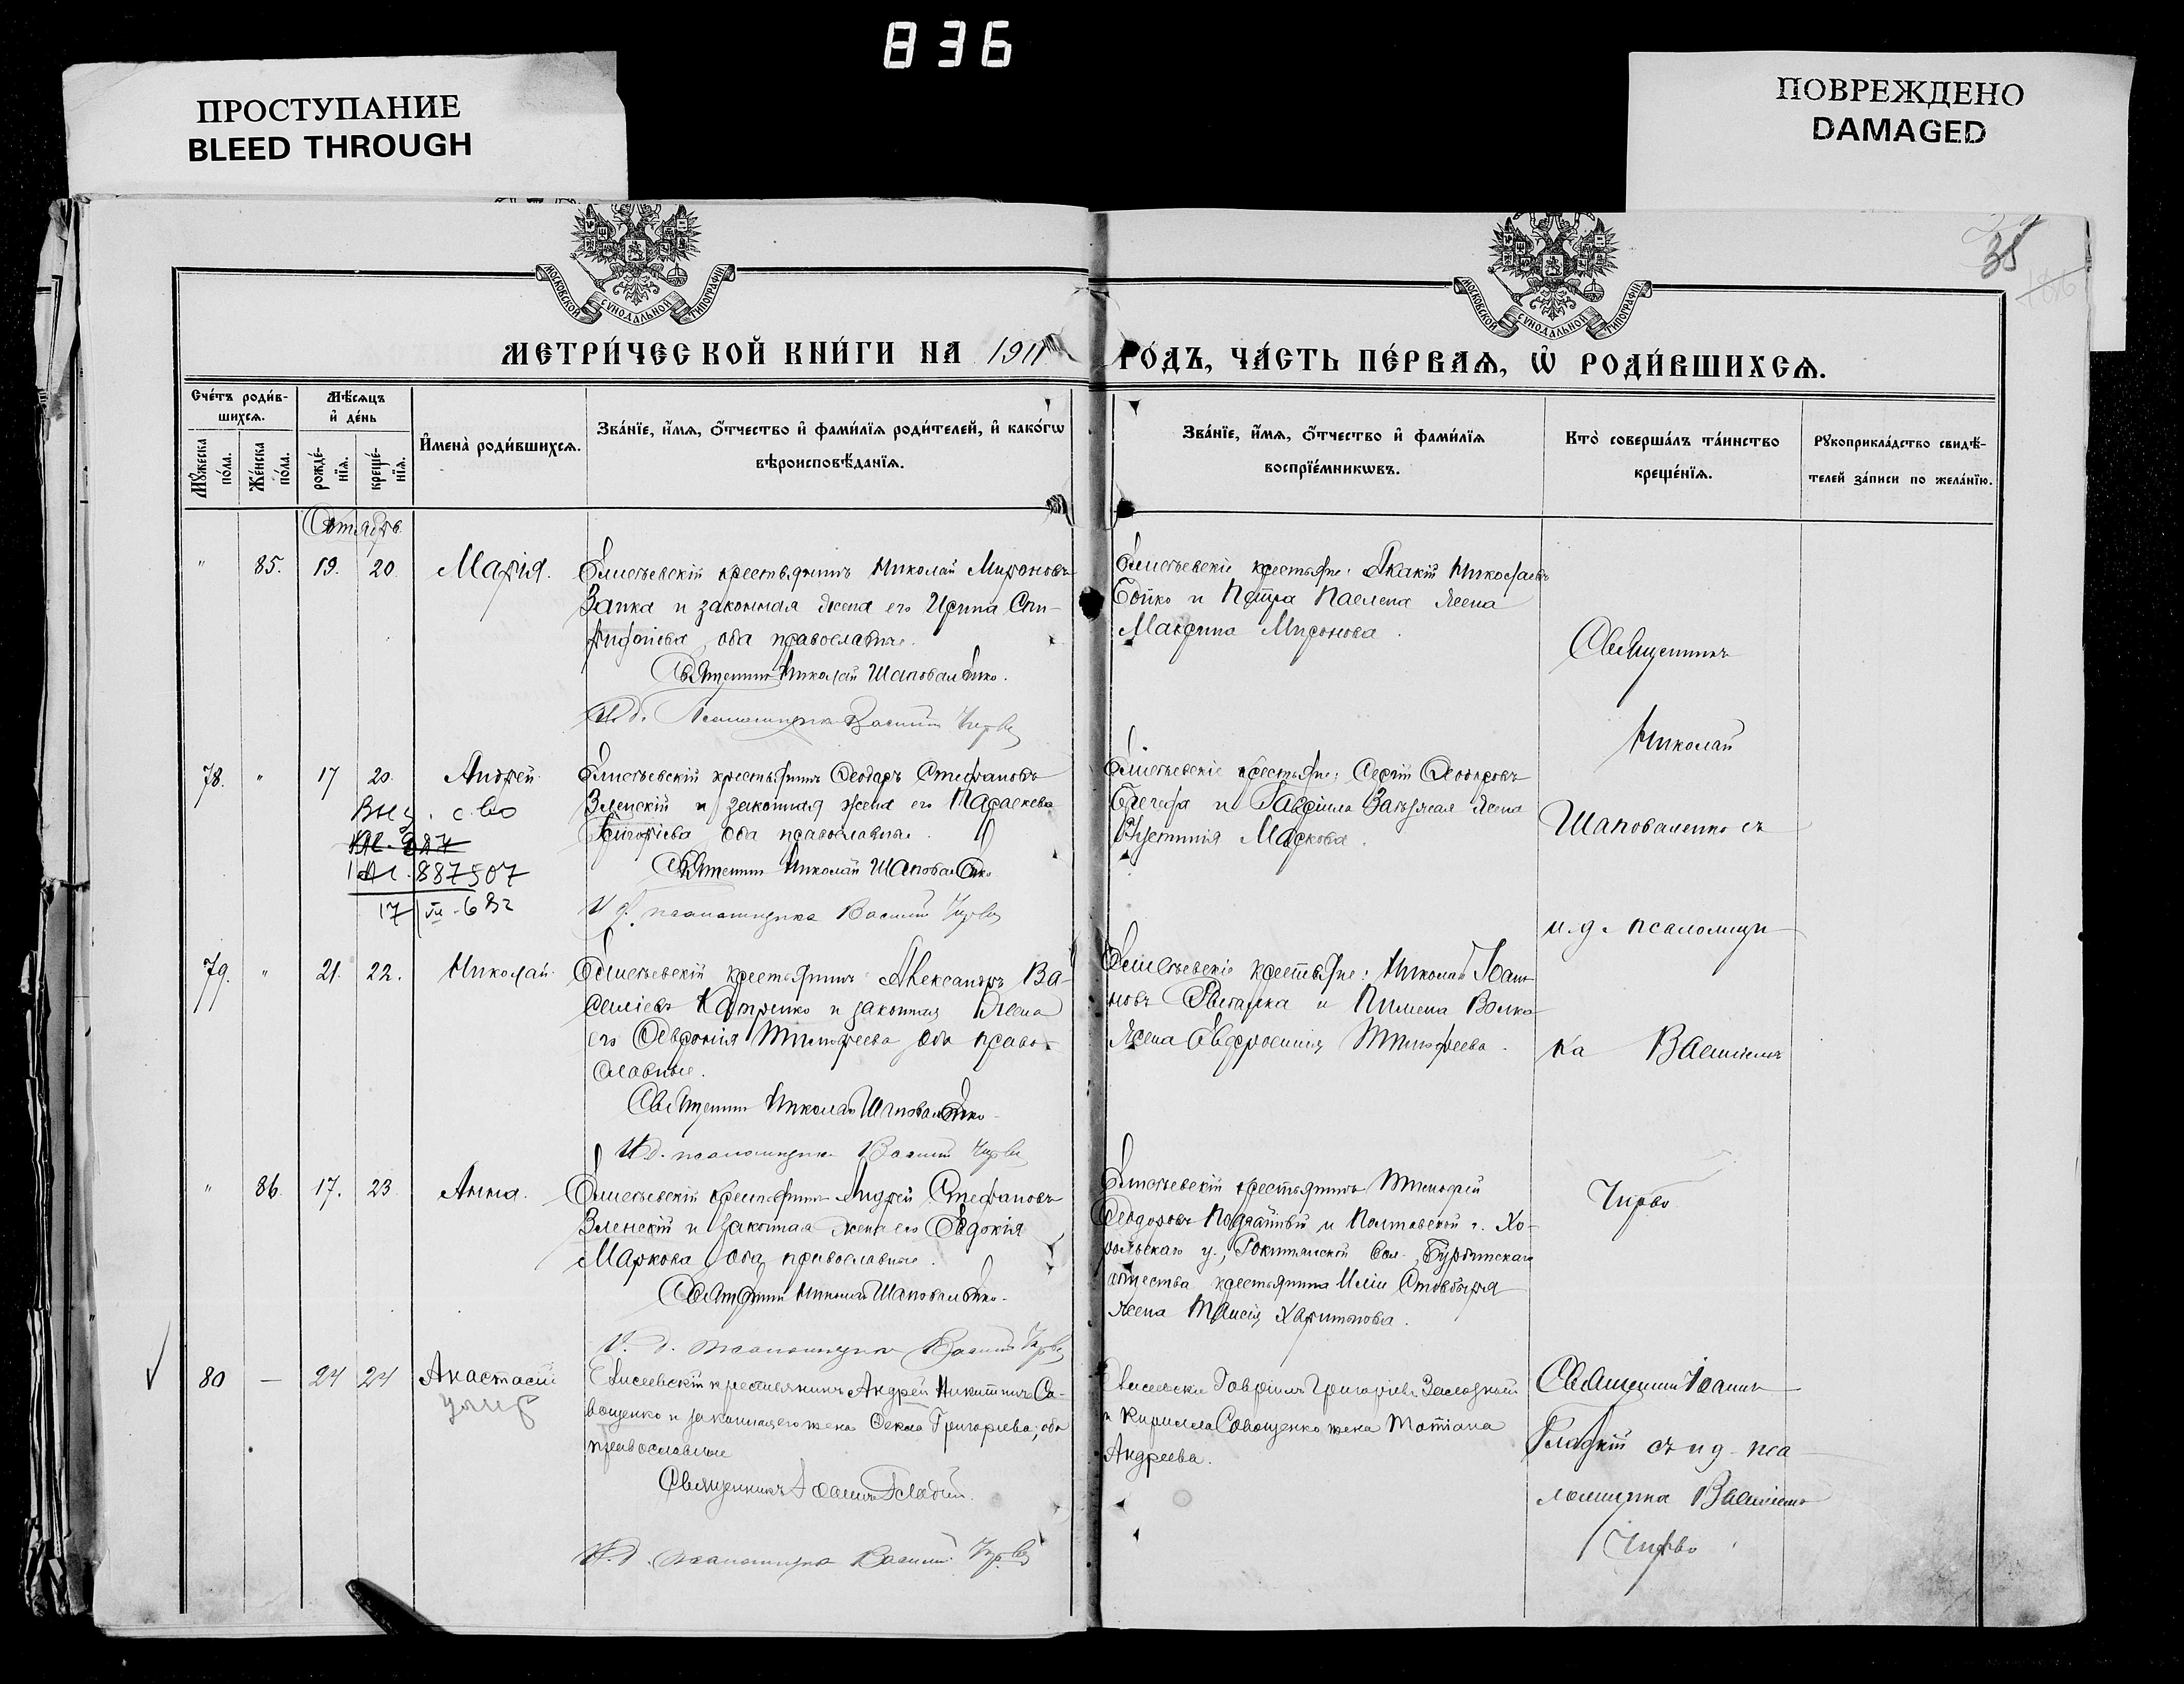 836
ПРОСТУПАНИЕ
BLEED THROUGH
ПОВРЕЖДЕНО
DAMAGED
МОСКОВСКОЙ СѴНОДАЛЬНОЙ ТИПОГРАФІИ
МОСКОВСКОЙ СѴНОДАЛЬНОЙ ТИПОГРАФІИ
35
МЕТРИ́ЧЕСКОЙ КНИ́ГИ НА 1911
ГО́ДЪ, ЧА́СТЬ ПЕ́РВАЯ, Ѡ҆ РОДИ́ВШИХСЯ.
Сче́тъ роди́в-
шихсѧ.
Мꙋ́жеска
по́ла.
Же́нска
по́ла.
Мѣ́сѧцъ
и҆ де́нь
рожде́-
нїѧ.
креще́-
нїѧ.
И҆мена̀ роди́вшихсѧ.
Зва́нїе, и҆́мѧ, ѻ҆́тчество и҆ фами́лїѧ роди́телей, и҆ како́гѡ
вѣроисповѣ́данїѧ.
Зва́нїе, и҆́мѧ, ѻ҆́тчество и҆ фами́лїѧ
воспрїе́мникѡвъ.
Кто̀ соверша́лъ та́инство
креще́нїѧ.
Рꙋкоприкла́дство свидѣ́-
телей за́писи по жела́нїю.
Октябрь
" 85. 19. 20 Марія.
Елисѣевскій крестьянинъ Николай Мироновъ
Запка и законная жена его Ирина Спи-
ридонова, оба православные.
Священникъ Николай Шаповаленко.
И.д. Псаломщика Василій Чирво
Елисѣевскіе крестьяне: Акакій Николаевъ
Бойко и Петра Павленка жена
Макрина Миронова.
78. " 17 20. Андрей
Елисѣевскій крестьянинъ Ѳеодоръ Стефановъ
Зленскій и законная жена его Параскева
Григоріева оба православные.
Священникъ Николай Шаповаленко
И.д. псаломщика Василій Чирво
Елисѣевскіе крестьяне: Сергій Ѳеодоровъ
и Гавріила жена
Маркова.
887507
17
79. " 21. 22. Николай
Елисѣевскій крестьянинъ Александръ Ва-
силіевъ и законная жена
его Ѳевронія Тимофеева оба право-
славные.
Священникъ Николай Шаповаленко
И.д. псаломщика Василій Чирво
Елисѣевскіе крестьяне: Николай Іоан-
новъ и Пимена Волка
жена Евфросинія Тимофеева.
" 86. 17. 23 Анна.
Елисѣевскій крестьянинъ Андрей Стефановъ
Зленскій и законная жена его Евдокія
Маркова оба православные.
Священникъ Николай Шаповаленко.
И.д. псаломщика Василій Чирво
Елисѣевскій крестьянинъ Тимофей
Ѳеодоровъ и Полтавской г. Хо-
рольскаго у.,
общества крестьянина Иліи
жена Таисія Харитонова.
Священникъ
Николай
Шаповаленко съ
и.д. псаломщи-
ка Василіемъ
Чирво
80 — 24 24 Анастасій
умер
Елисеевскій крестьянинъ Андрей Никитинъ Са-
вощенко и законная его жена Ѳекла Григорьева, оба
православные
Священникъ Іоаннъ Гладкій.
И.д. псаломщика Василій Чирво
Елисеевскіе Гавріилъ Григоріевъ
и Кирилла Савощенко жена Татіана
Андреева.
Священникъ Іоаннъ
Гладкій съ и д. пса-
ломщика Василіемъ
Чирво